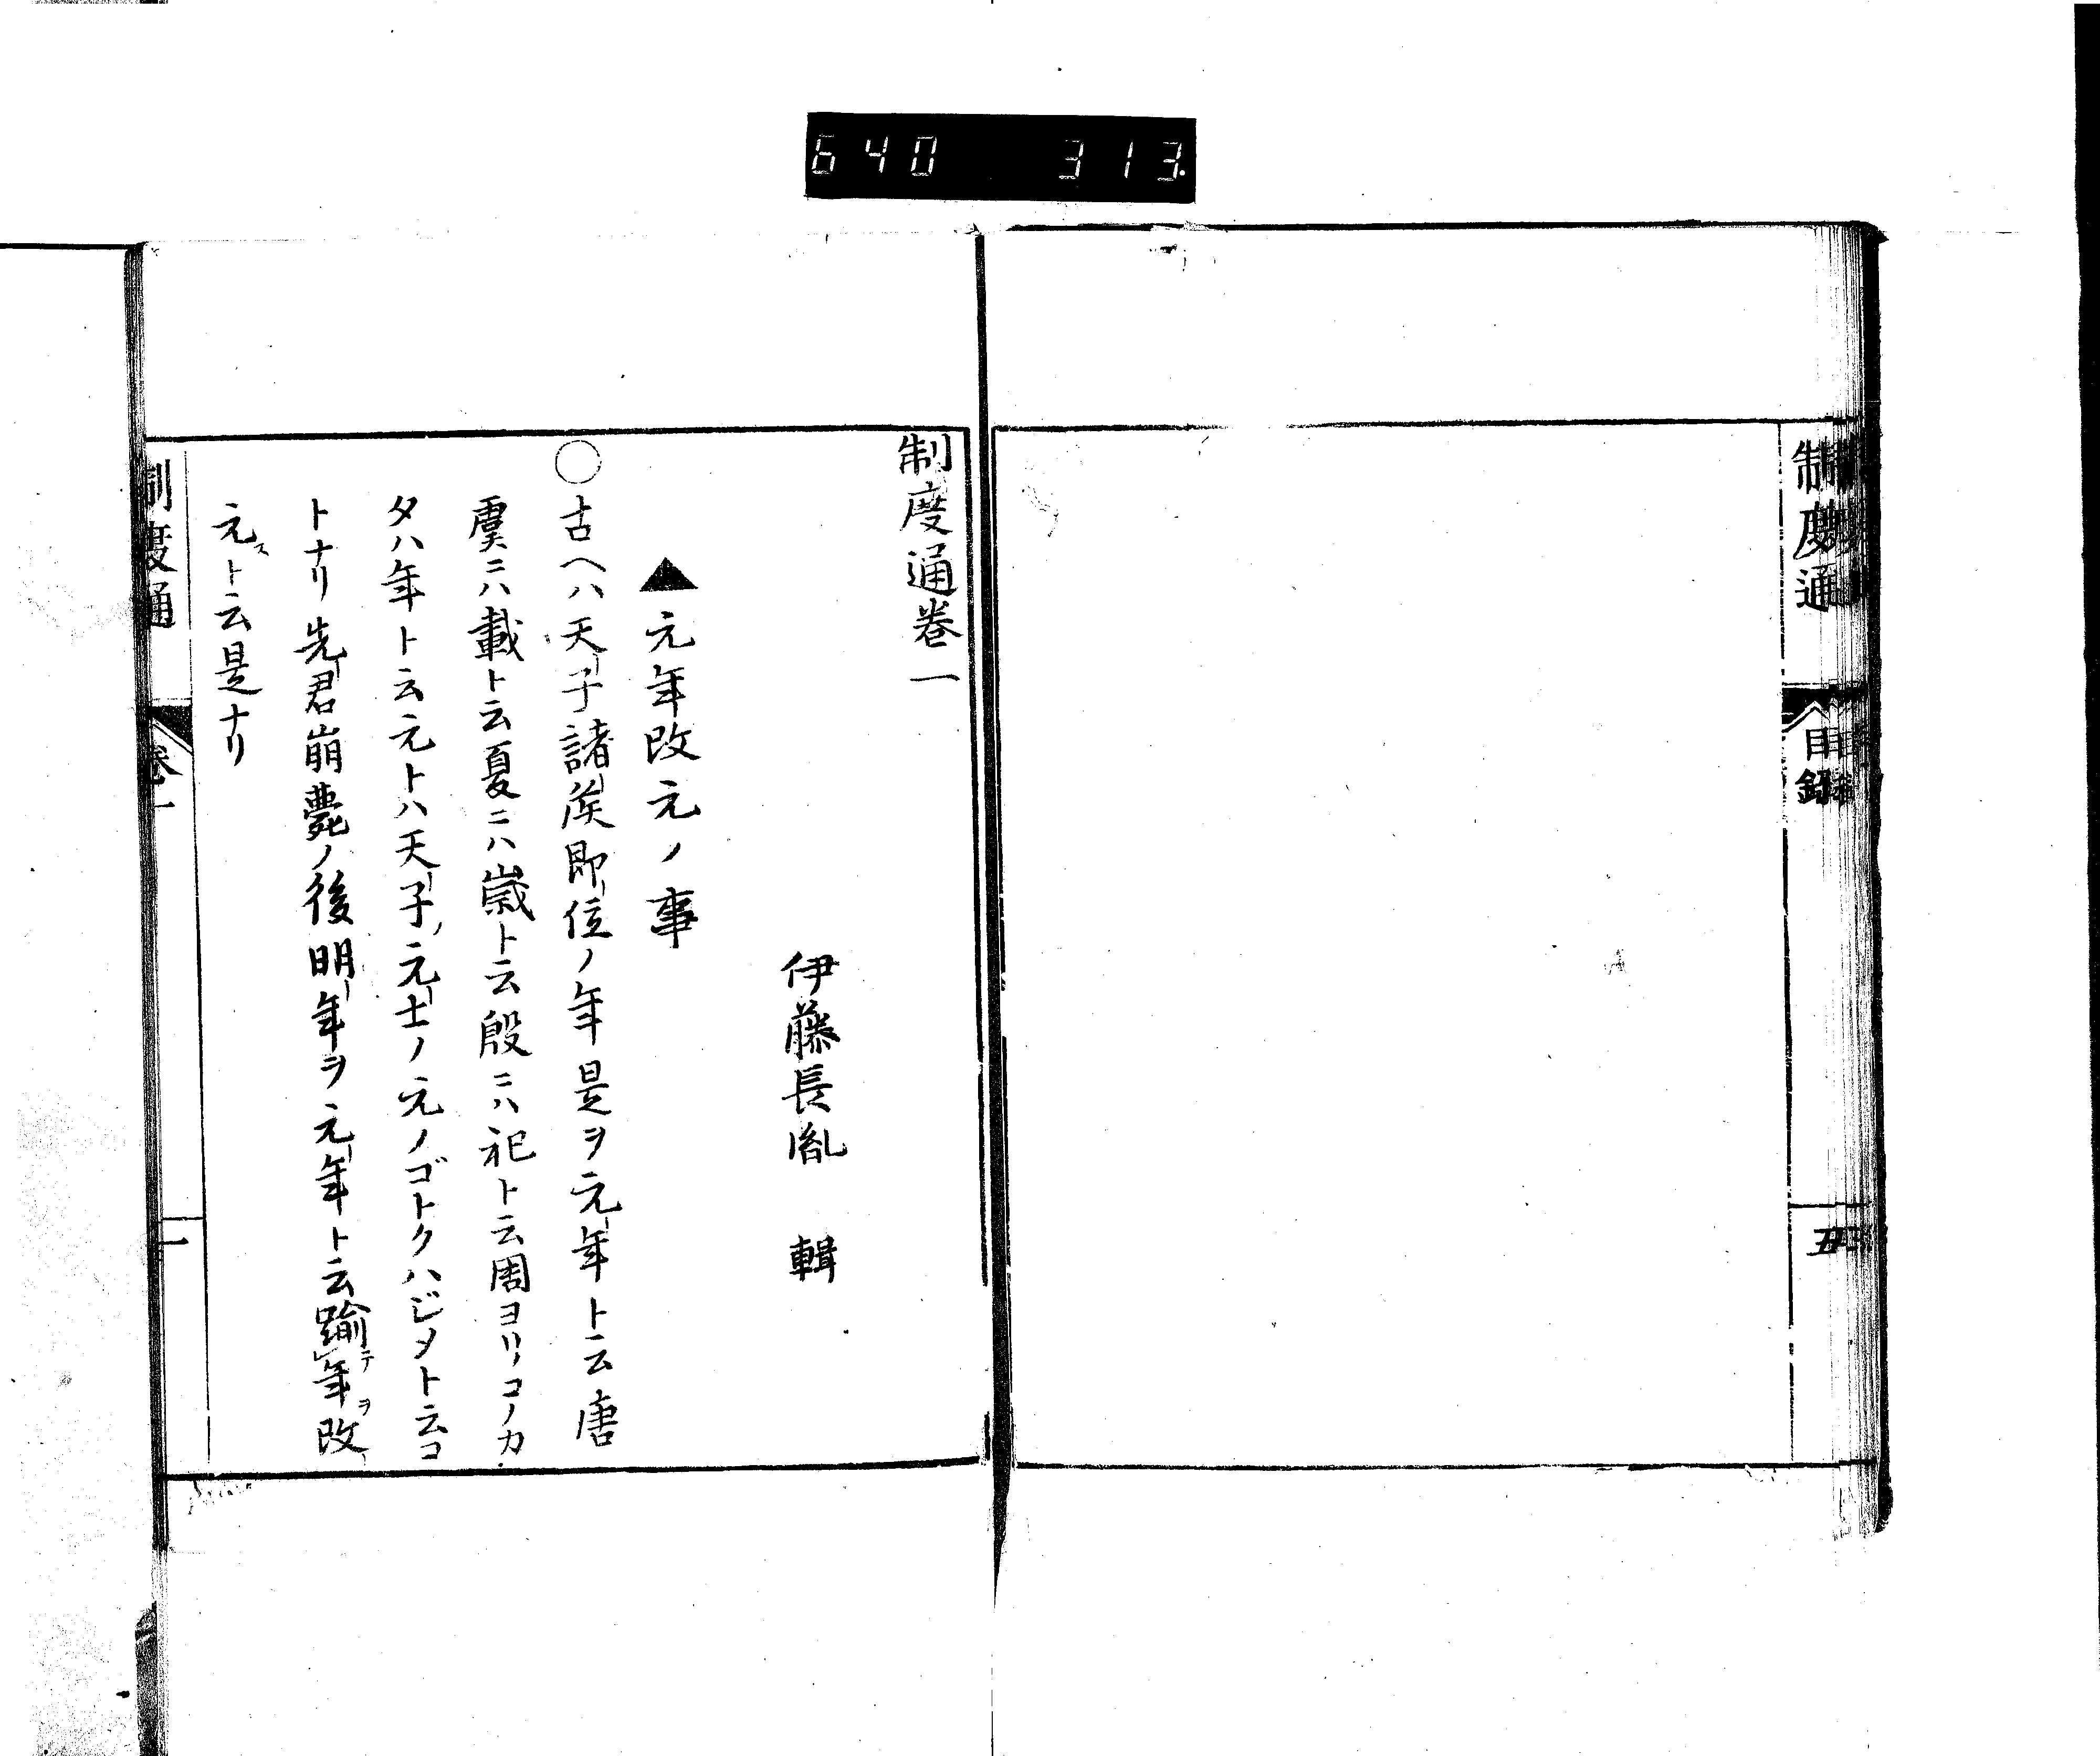 640 313.
制度通
目録
五
制度通卷一
伊藤長胤 輯
▲元年改元ノ事
○古ヘハ天子諸侯即位ノ年是ヲ元年ト云唐
虞ニハ載ト云夏ニハ歳ト云殷ニハ祀ト云周ヨリコノカ
タハ年ト云元トハ天子ノ元士ノ元ノゴトクハジメト云コ
トナリ先君崩薨ノ後明年ヲ元年ト云踰テ年ヲ改
元スト云是ナリ
制度通
卷一
一